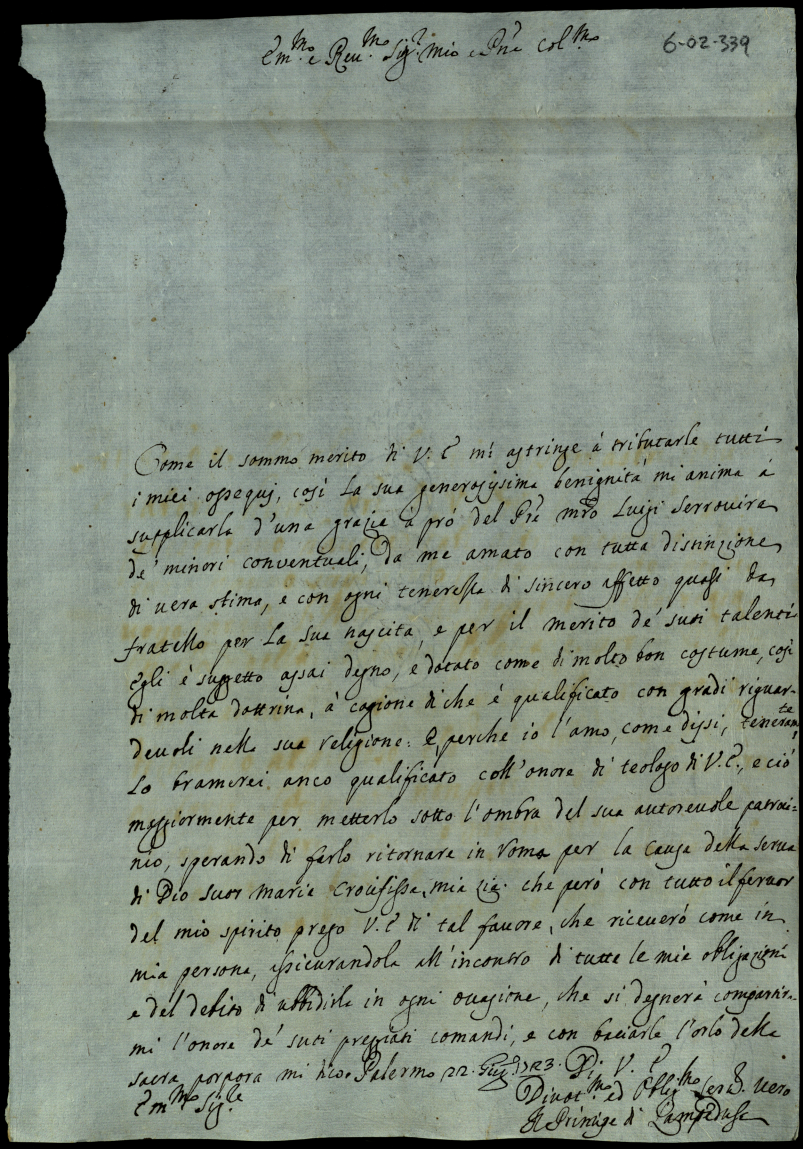 Em.mo e Reu.mo Sig.r mio e Pñe Col.mo
6-02-339
Come il sommo merito di V. E. mi astringe à tributarle tutti
i miei ossequj, così la sua generosissima benignità mi anima à
supplicarla d'una grazia à prò del Prê mrõ Luigi Serrovira
de' minori conventuali, da me amato con tutta distinzione
di uera stima, e con ogni teneressa di sincero affetto quasi da
fratello per la sua nascita, e per il merito de' suoi talenti
Egli è suggetto assai degno, e dotato come di molto bon costume, così
di molta dottrina, à cagione di che è qualificato con gradi riguar-
deuoli nella sua religione: E perche io l'amo, come dissi, teneram.te
Lo bramerei anco qualificato coll'onore di teologo di V. E., e ciò
maggiormente per metterlo sotto l'ombra del sua autoreuole patroci-
nio, sperando di farlo ritornare in Roma per la causa della serua
di Dio suor Maria Crocifissa, mia zia. che però con tutto il feruor
del mio spirito prego V. E. di tal fauore, che riceuerò come in
mia persona, assicurandola all'incontro di tutte le mie obligazioni
e del debito di ubbidirla in ogni ocasione, che si degnerà compartir-
mi l'onore de' suoi pregiati comandi, e con baciarle l'orlo della
sacra porpora mi dico. Palermo 22. Giug.o 1723. Di V. E.
Em.mo Sig.re
Diuot.mo ed Oblig.mo ser.e uero
Il Principe di Lampedusa